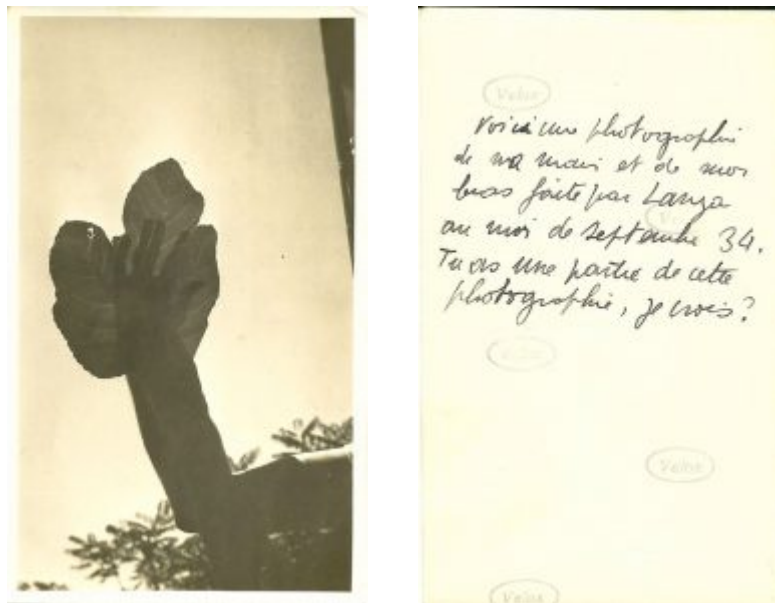 Velox
Voici une photographie
de ma main et de mon
bras faite par Lanza
au moi de septembre 34.
Tu as une partie de cette
photographie, je crois?
Velox
Velox
Velox